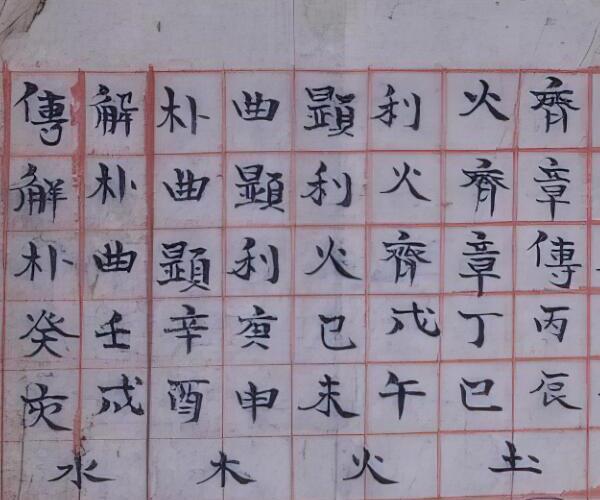 齊章傳丙辰
火齊章丁巳
利火齊戊午
顕利火己未
曲顕利庚申
朴曲顕辛酉
解朴曲壬戌
傳解朴癸亥
土火木水